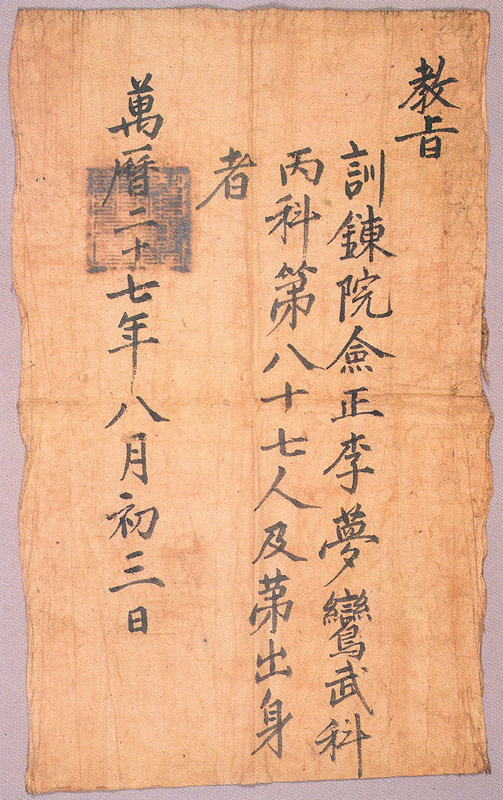 教旨
訓鍊院僉正李夢鸞武科
丙科第八十七人及第出身
者
萬曆二十七年八月初三日